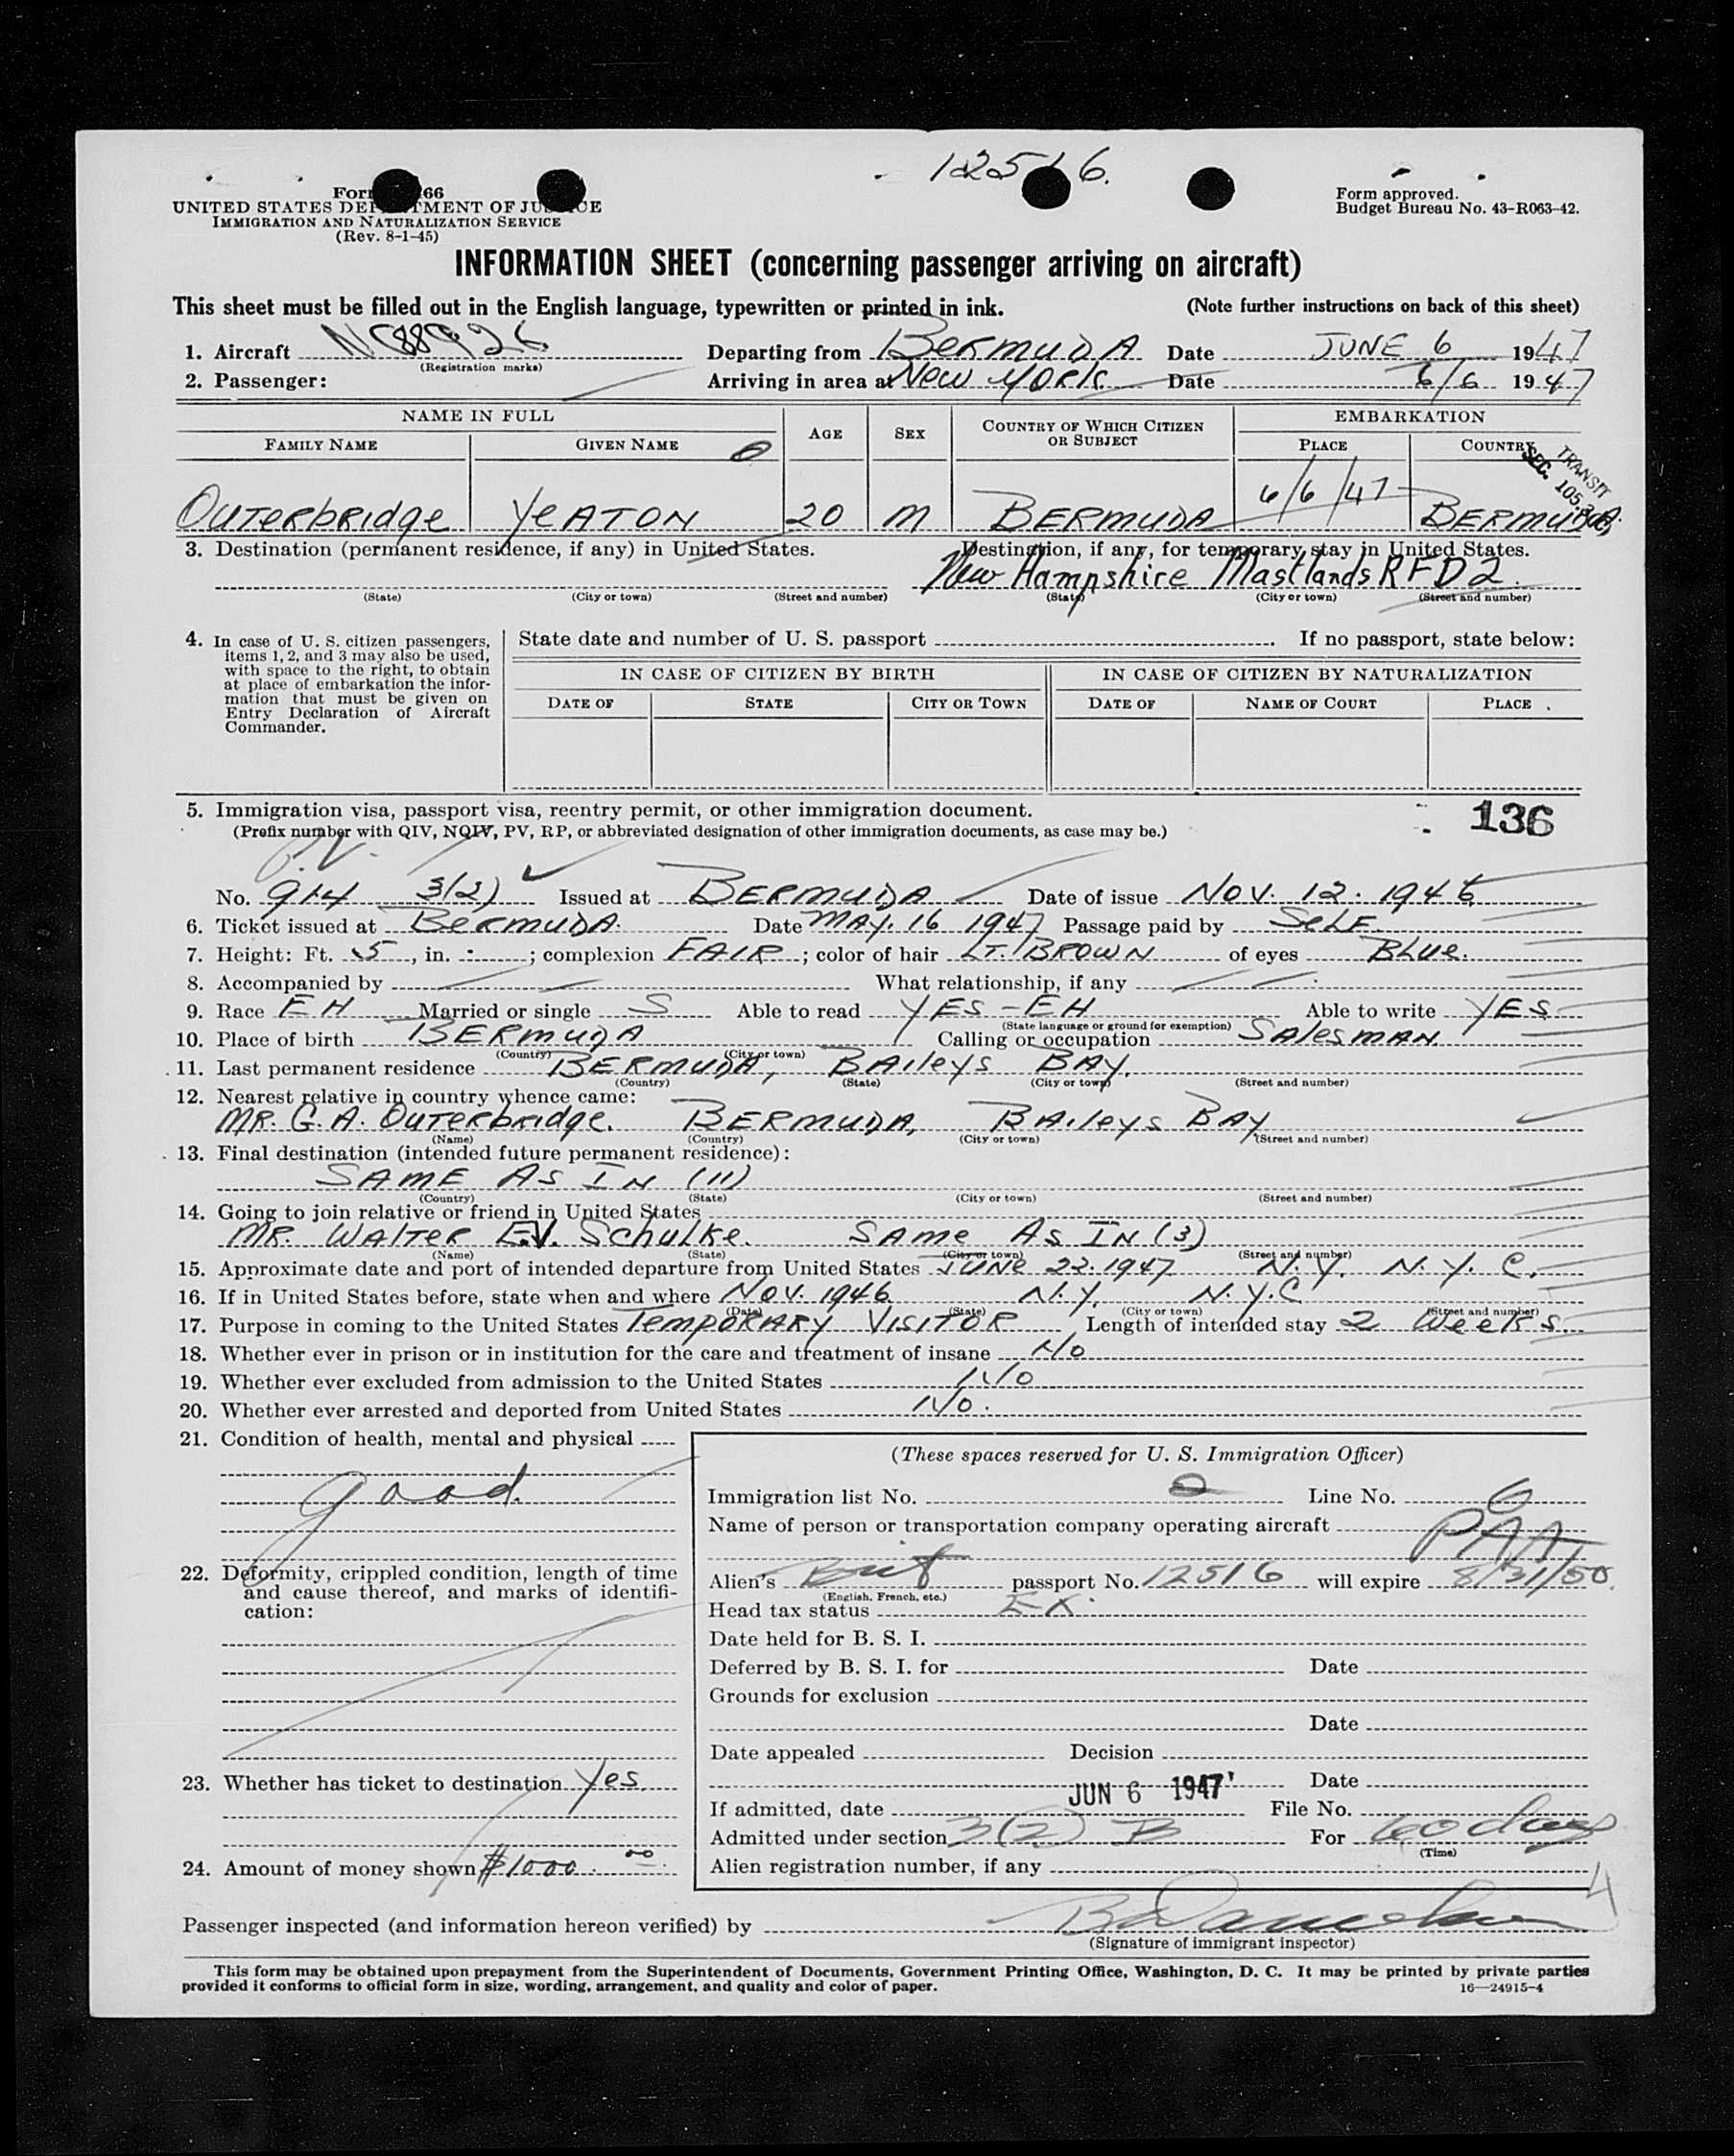 12516.
Form 66
UNITED STATES DEPARTMENT OF JUSTICE
IMMIGRATION AND NATURALIZATION SERVICE
(Rev. 8-1-45)
Form approved.
Budget Bureau No. 43-R063-42.
INFORMATION SHEET (concerning passenger arriving on aircraft)
This sheet must be filled out in the English language, typewritten or printed in ink. (Note further instructions on back of this sheet)
1. Aircraft NC88926 Departing from BERMUDA Date JUNE 6 1947
(Registration marks)
2. Passenger: Arriving in area at New York Date 6/6 1947
NAME IN FULL AGE SEX COUNTRY OF WHICH CITIZEN OR SUBJECT EMBARKATION
FAMILY NAME GIVEN NAME PLACE COUNTRY
TRANSIT
SEC. 105.3
Outerbridge YeATON 20 M BERMUDA 6/6/47 BERMUDA
3. Destination (permanent residence, if any) in United States. Destination, if any, for temporary stay in United States.
New Hampshire Mastlands RFD 2.
(State) (City or town) (Street and number) (State) (City or town) (Street and number)
4. In case of U. S. citizen passengers, items 1, 2, and 3 may also be used, with space to the right, to obtain at place of embarkation the information that must be given on Entry Declaration of Aircraft Commander.
State date and number of U. S. passport . If no passport, state below:
IN CASE OF CITIZEN BY BIRTH IN CASE OF CITIZEN BY NATURALIZATION
DATE OF STATE CITY OR TOWN DATE OF NAME OF COURT PLACE
5. Immigration visa, passport visa, reentry permit, or other immigration document. 136
(Prefix number with QIV, NQIV, PV, RP, or abbreviated designation of other immigration documents, as case may be.)
P.V.
No. 914 3(2) Issued at BERMUDA Date of issue NOV. 12. 1946
6. Ticket issued at BERMUDA. Date MAY. 16 1947 Passage paid by SELF
7. Height: Ft. 5, in. -; complexion FAIR; color of hair LT. BROWN of eyes BLUE.
8. Accompanied by What relationship, if any
9. Race EH Married or single S Able to read YES - EH Able to write YES
(State language or ground for exemption)
10. Place of birth BERMUDA Calling or occupation SALESMAN
(Country) (City or town)
11. Last permanent residence BERMUDA, BAILEYS BAY.
(Country) (State) (City or town) (Street and number)
12. Nearest relative in country whence came:
MR. G. A. OUTERBRIDGE. BERMUDA, BAILEYS BAY
(Name) (Country) (City or town) (Street and number)
13. Final destination (intended future permanent residence):
SAME AS IN (11)
(Country) (State) (City or town) (Street and number)
14. Going to join relative or friend in United States
MR. WALTER E.V. Schulke. SAME AS IN (3)
(Name) (State) (City or town) (Street and number)
15. Approximate date and port of intended departure from United States JUNE 22. 1947 N.Y. N.Y.C.
16. If in United States before, state when and where NOV. 1946 N.Y. N.Y.C
(Date) (State) (City or town) (Street and number)
17. Purpose in coming to the United States TEMPORARY VISITOR Length of intended stay 2 WEEKS
18. Whether ever in prison or in institution for the care and treatment of insane No
19. Whether ever excluded from admission to the United States No
20. Whether ever arrested and deported from United States No.
21. Condition of health, mental and physical
good.
22. Deformity, crippled condition, length of time and cause thereof, and marks of identification:
23. Whether has ticket to destination Yes
24. Amount of money shown $1000.00
(These spaces reserved for U. S. Immigration Officer)
Immigration list No. 2 Line No. 6
Name of person or transportation company operating aircraft
PAA
Alien's Brit passport No. 12516 will expire 8/31/50.
(English, French, etc.)
Head tax status EX.
Date held for B. S. I.
Deferred by B. S. I. for Date
Grounds for exclusion
Date
Date appealed Decision
Date
If admitted, date JUN 6 1947 File No.
Admitted under section 3(2) B For 60 days
(Time)
Alien registration number, if any
4
Passenger inspected (and information hereon verified) by
(Signature of immigrant inspector)
This form may be obtained upon prepayment from the Superintendent of Documents, Government Printing Office, Washington, D. C. It may be printed by private parties
provided it conforms to official form in size, wording, arrangement, and quality and color of paper. 16—24915-4